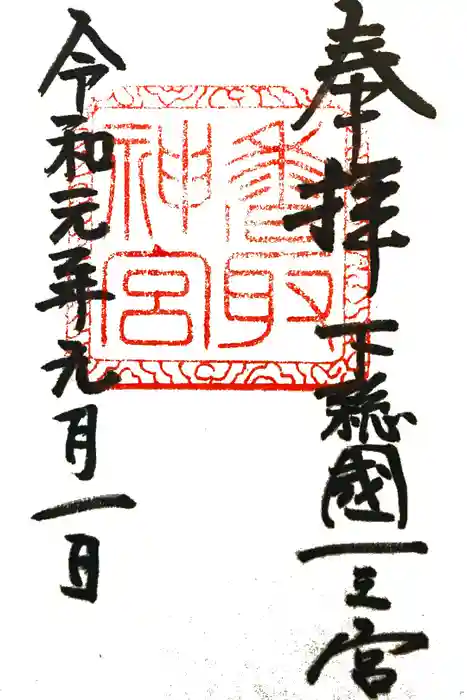 奉拝 下総國一之宮
香取神宮
令和元年九月一日